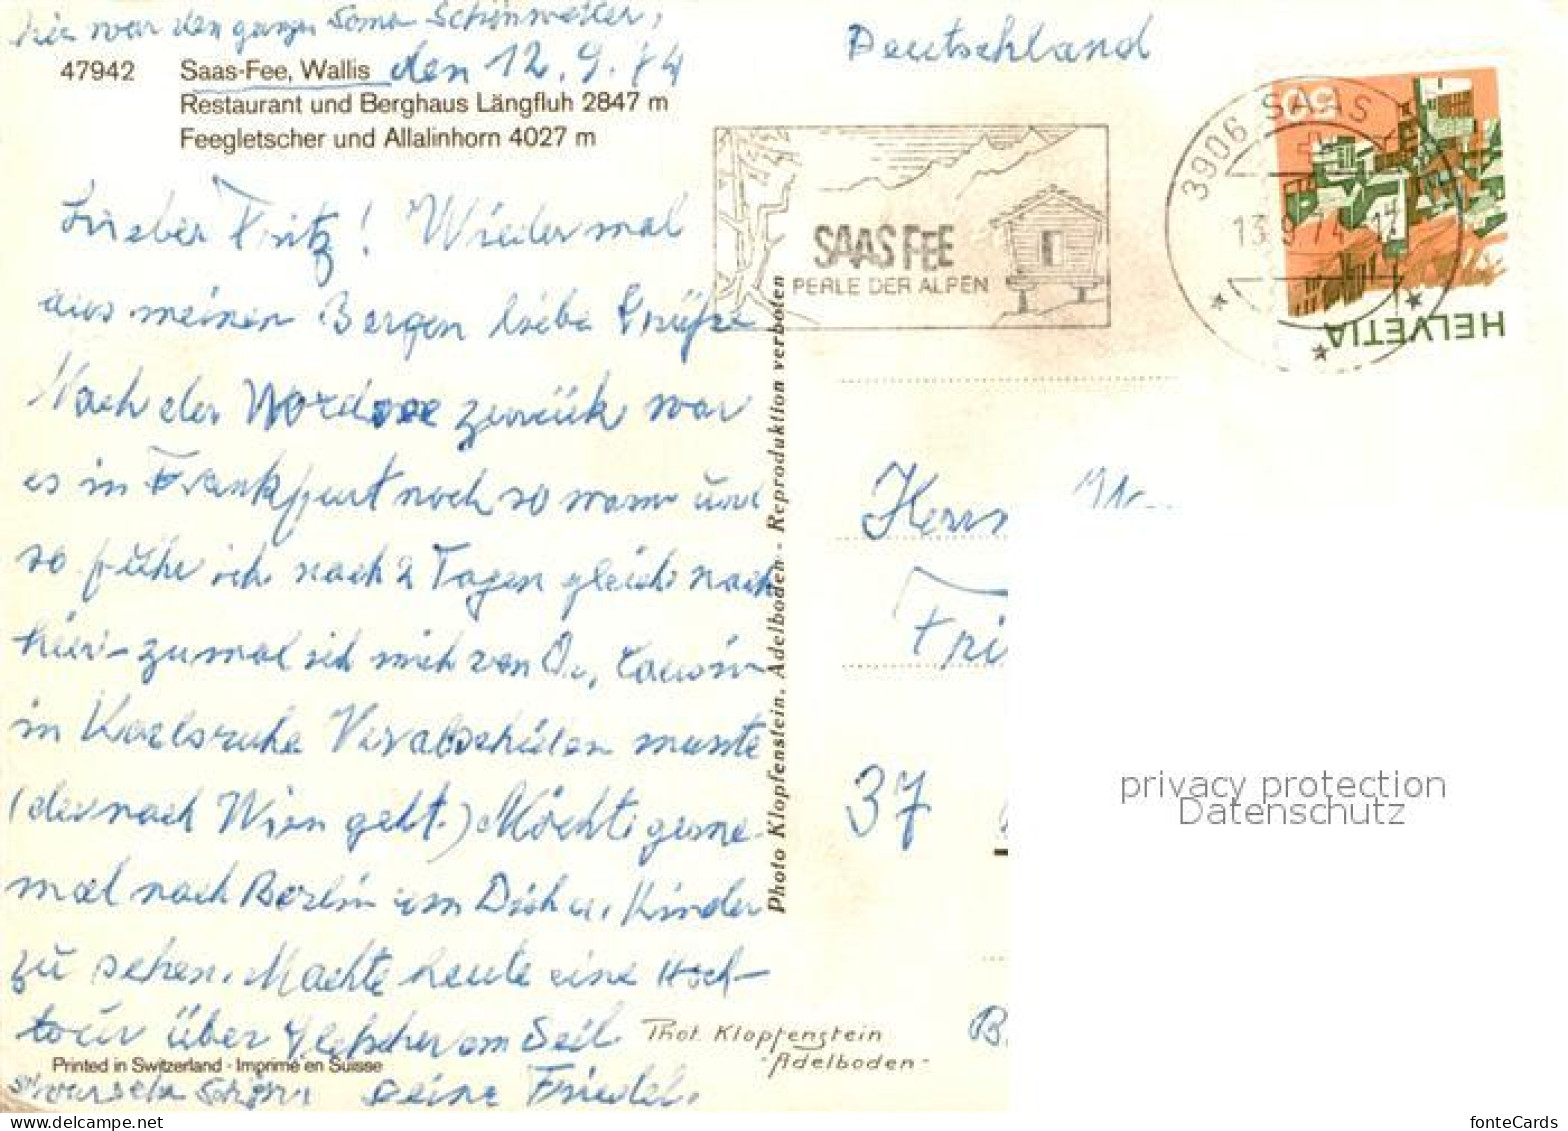 hier war den ganzen Sommer Schönwetter,
47942 Saas-Fee, Wallis den 12.9.74
Restaurant und Berghaus Längfluh 2847 m
Feegletscher und Allalinhorn 4027 m
Lieber Fritz! Wiedermal
aus meinen Bergen liebe Grüße
Nach der Nordsee zurück war
es in Frankfurt noch so warm und
so fuhr ich nach 2 Tagen gleich nach
hier - zumal ich mich von
in Karlsruhe Verabschieden musste
(der nach Wien geht.) Möchte gerne
mal nach Berlin um Dich u. Kinder
zu sehen. Machte heute eine Hoch-
tour über Gletscher am Seil
Printed in Switzerland - Imprimé en Suisse
war sehr schön! Deine Friedel.
Photo Klopfenstein, Adelboden - Reproduktion verboten
Phot. Klopfenstein
- Adelboden -
Deutschland
SAAS FEE
PERLE DER ALPEN
3906 SAAS-FEE
13.9.74-14
50
HELVETIA
Herrn
Fri
37
B
privacy protection
Datenschutz
fonteCards